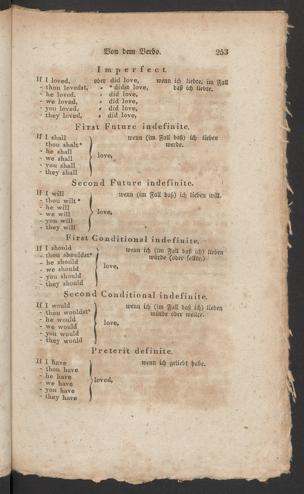 Von dem Verbo. 253
Imperfect.
If I loved, oder did love, wenn ich liebte, im Fall
- thou lovedst, - * didst love, daß ich liebte.
- he loved, - did love,
- we loved, - did love,
- you loved, - did love,
- they loved, - did love,
First Future indefinite.
If I shall wenn (im Fall daß) ich lieben
- thou shalt* werde.
- he shall
- we shall love,
- you shall
- they shall
Second Future indefinite.
If I will wenn (im Fall daß) ich lieben will.
- thou wilt*
- he will
- we will love,
- you will
- they will
First Conditional indefinite.
If I should wenn ich (im Fall daß ich) lieben
- thou shouldst* würde (oder sollte.)
- he should
- we should love,
- you should
- they should
Second Conditional indefinite.
If I would wenn ich (im Fall daß ich) lieben
- thou wouldst* würde oder wollte.
- he would
- we would love,
- you would
- they would
Preterit definite.
If I have wenn ich geliebt habe.
- thou have
- he have
- we have loved,
- you have
- they have